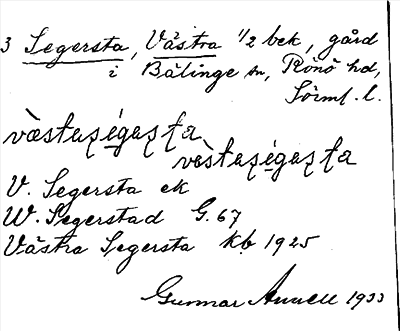 3 Segersta, Västra 1/2 bek, gård
i Bälinge sn, Rönö hd,
Sörml. l.
V. Segersta ek
W. Segerstad G. 67
Västra Segersta kb 1925
Gunnar 1933